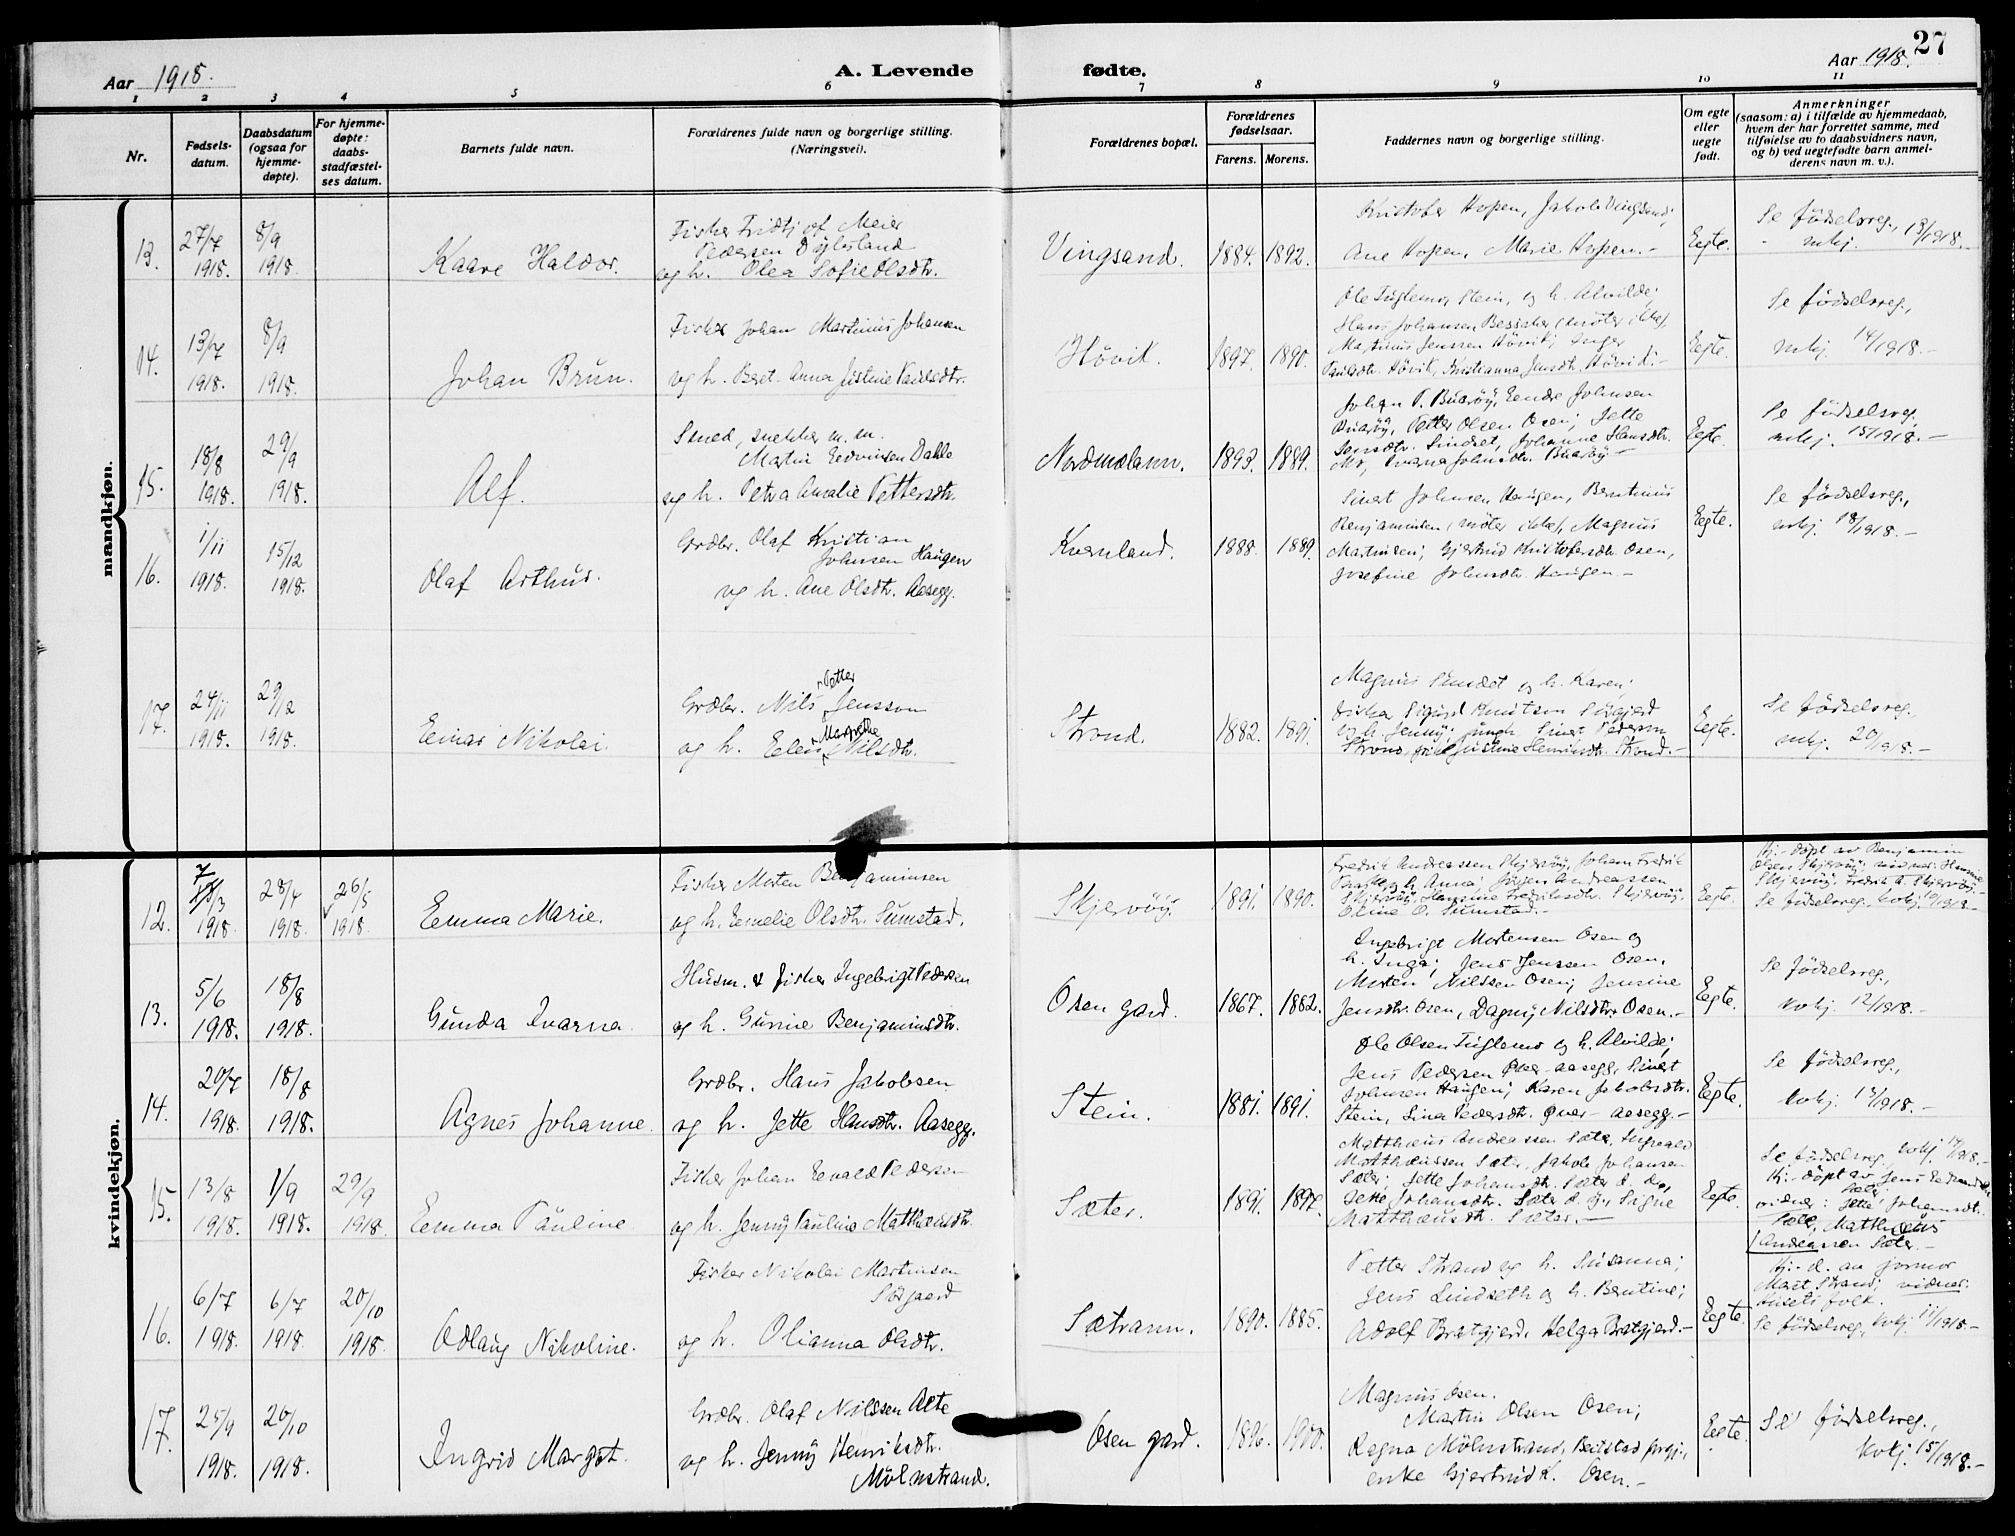 27
Aar 1918.
A. Levende fødte.
Aar 1918.
1 2 3 4 5 6 7 8 9 10 11
Nr.
Fødsels-
datum.
Daabsdatum
(ogsaa for
hjemme-
døpte).
For hjemme-
døpte:
daabs-
stadfæstel-
ses datum.
Barnets fulde navn.
Forældrenes fulde navn og borgerlige stilling.
(Næringsvei).
Forældrenes bopæl.
Forældrenes
fødselsaar.
Farens. Morens.
Faddernes navn og borgerlige stilling.
Om egte
eller
uegte
født.
Anmerkninger
(saasom: a) i tilfælde av hjemmedaab,
hvem der har forrettet samme, med
tilføielse av to daabsvidners navn,
og b) ved uegtefødte barn anmel-
derens navn m. v.).
mandkjøn.
13.
27/7
1918.
8/9
1918.
Kaare Haldor.
Fisker Fridtjof Meier
Pedersen
og h. Olea Sofie Olsdtr.
Vingsand.
1884. 1892.
Kristofer Hopen, Jakob Vingsand;
Ane Hopen, Marie Hopen.-
Eegte.
Se fødselsreg., 13/1918.-
mkj.
14.
13/7
1918.
8/9
1918.
Johan Brun.
Fisker Johan Martinus Johansen
og h. Beret Anna Justine Paulsdtr.
Høvik.
1897. 1890.
Ole Tuglemo, Stein, og h. Alvilde;
Hans Johansen Bessaker (møter ikke),
Martinus Jenssen Høvik; Inger
Paulsdtr. Høvik, Kristianna Jensdtr. Høvik.-
Eegte.
Se fødselsreg.,
mkj. 14/1918.-
15.
18/8
1918.
29/9
1918.
Alf.
Smed, snekker m. m.
Martin Edvinsen Dahle
og h. Petra Amalie Pettersdtr.
Nordmelann.
1893. 1889.
Johan P. Buarøy, Eendre Johnsen
Buarøy, Petter Olsen Osen; Jette
Jensdtr. Sindset, Johanne Hansdtr.
Mo, Ivarna Johnsdtr. Buarøy-
Eegte.
Se fødselsreg.
mkj. 15/1918.-
16.
1/11
1918.
15/12
1918.
Olaf Arthur.
Grdbr. Olaf Kristian
Johnsen Haugen
og h. Ane Olsdtr. Aasegg.
Kvernland.
1888. 1889.
Sivert Johnsen Haugen, Berntinus
Benjaminsen (møter ikke), Magnus
Martinsen; Gjertrud Kristofersdtr. Osen,
Josefine Johnsdtr. Haugen.-
Eegte.
Se fødselsreg.,
mkj. 18/1918.-
17.
24/11
1918.
29/12
1918.
Einar Nikolai.
Petter
Grdbr. Nils Jensson
Margrethe
og h. Elen Nilsdtr.
Strand.
1882. 1891.
Magnus Sundet og h. Karen;
fisker Sigurd Knutson Sørgjerd
og h. Jenny; ungk. Sivert Pederson
Strand, pike Justine Henriksdtr. Strand.-
Eegte.
Se fødselsreg.
mkj. 20/1918.-
kvindekjøn.
12.
7
/3
1918.
28/4
1918.
26/5
1918.
Eemma Marie.
Fisker Morten Benjaminsen
og h. Eemelie Olsdtr. Sumstad.
Skjervøy.
1891. 1890.
Fredrik Andreassen Skjervøy, Johan Fredrik
og h. Anna; Jørgen Andreassen
Skjervøy, Hansine Fredriksdtr. Skjervøy,
Eline O. Sumstad.-
Eegte.
Hj.-døpt av Benjamin
Olsen Skjervøy, vidner: Hanna
Skjervøy, Fredrik A. Skjervøy.
Se fødselsreg. kvkj. 10/1918.-
13.
5/6
1918.
18/8
1918.
Gunda Ivarna.
Husm. & fisker Ingebrigt Pedersen
og h. Gurine Benjaminsdtr.
Osen gard.
1867. 1882.
Ingebrigt Mortensen Osen og
h. Inga; Jens Jenssen Osen,
Morten Nilssen Osen; Jensine
Jensdtr. Osen, Dagny Nilsdtr. Osen.-
Eegte.
Se fødselsreg.,
kvkj. 12/1918.-
14.
20/7
1918.
18/8
1918.
Agnes Johanne.
Grdbr. Hans Jakobsen
og h. Jette Hansdtr. Aasegg.
Stein.
1881. 1891.
Ole Olsen Tuglemo og h. Alvilde;
Jens Pedersen Øver-aasegg, Sivert
Johnsen Haugen; Karen Jakobsdtr.
Stein, Lina Pedersdtr. Øver-aasegg.-
Eegte.
Se fødselsreg.,
kvkj. 13/1918.-
15.
13/8
1918.
1/9
1918.
29/9
1918.
Eemma Pauline.
Fisker Johan Eevald Pedersen
og h. Jenny Pauline Matthæusdtr.
Sæter.
1891. 1897.
Matthæus Andreassen Sæter, Ingvald
Matthæussen Sæter, Jakob Johansen
Sæter; Jette Johansdtr. Sæter d. e.,
Jette Johansdtr. Sæter d. y., Signe
Matthæusdtr. Sæter.-
Eegte.
Se fødselsreg., kvkj. 14/1918.-
Hj.-døpt av Jens
Sæter,
vidner: Jette Johansdtr.
Sæter, Matthæus
Andreassen Sæter.-
16.
6/7
1918.
6/7
1918.
20/10
1918.
Odlaug Nikoline.
Fisker Nikolai Martinsen
Sørgaard
og h. Olianna Olsdtr.
Sætrann.
1890. 1885.
Petter Strand og h. Susanna;
Jens Lindseth og h. Berntine;
Adolf Bratgjerd, Helga Bratgjerd.-
Eegte.
Hj.-d. av jormor
Marit Strand; vidner:
Husets folk.
Se fødselsreg., kvkj. 11/1918-
17.
25/9
1918.
20/10
1918.
Ingrid Margot.
Grdbr. Olaf Nilssen Aite
og h. Jenny Henriksdtr.
Mølnstrand.
Osen gard.
1896. 1900.
Magnus Osen.
Martin Olsen Osen;
Ragna Mølnstrand,
enke Gjertrud K. Osen.-
Eegte.
Se fødselsreg.,
kvkj. 15/1918.-